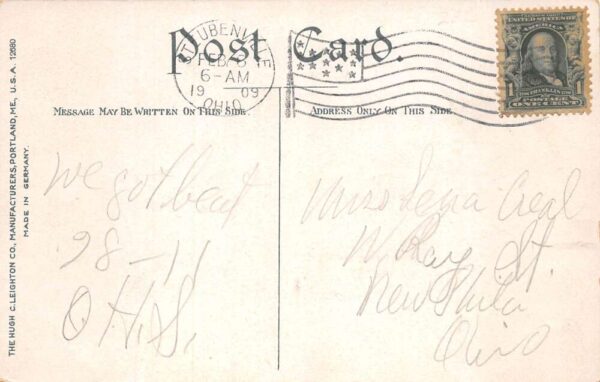 Post Card.
STEUBENVILLE
FEB 8
6-AM
1909
OHIO
UNITED STATES OF AMERICA
1 1
FRANKLIN
POSTAGE
ONE CENT
MESSAGE MAY BE WRITTEN ON THIS SIDE.
ADDRESS ONLY ON THIS SIDE.
THE HUGH C. LEIGHTON CO., MANUFACTURERS, PORTLAND, ME., U.S.A. 12680
MADE IN GERMANY.
We got beat
28-11
O.H.S.
Miss Lena Creal
W Ray St.
New Phila
Ohio